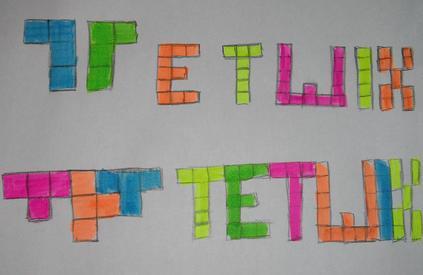 ETWIX
TETWIX